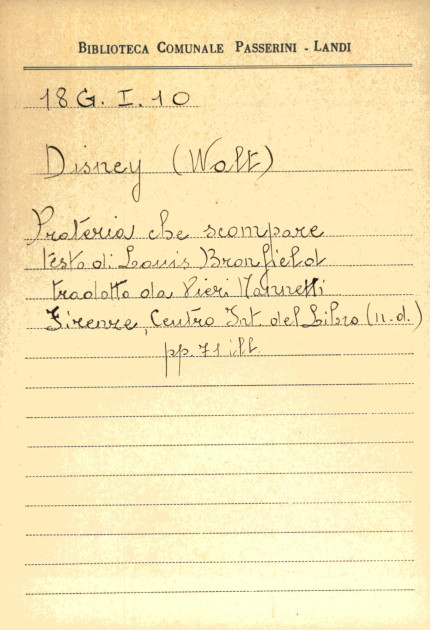 BIBLIOTECA COMUNALE PASSERINI - LANDI
18 G. I. 10
Disney (Walt)
Prateria che scompare
testo di Louis Bromfield
tradotto da Pieri
Firenze, Centro Int. del Libro (n.d.)
pp. 71 ill.